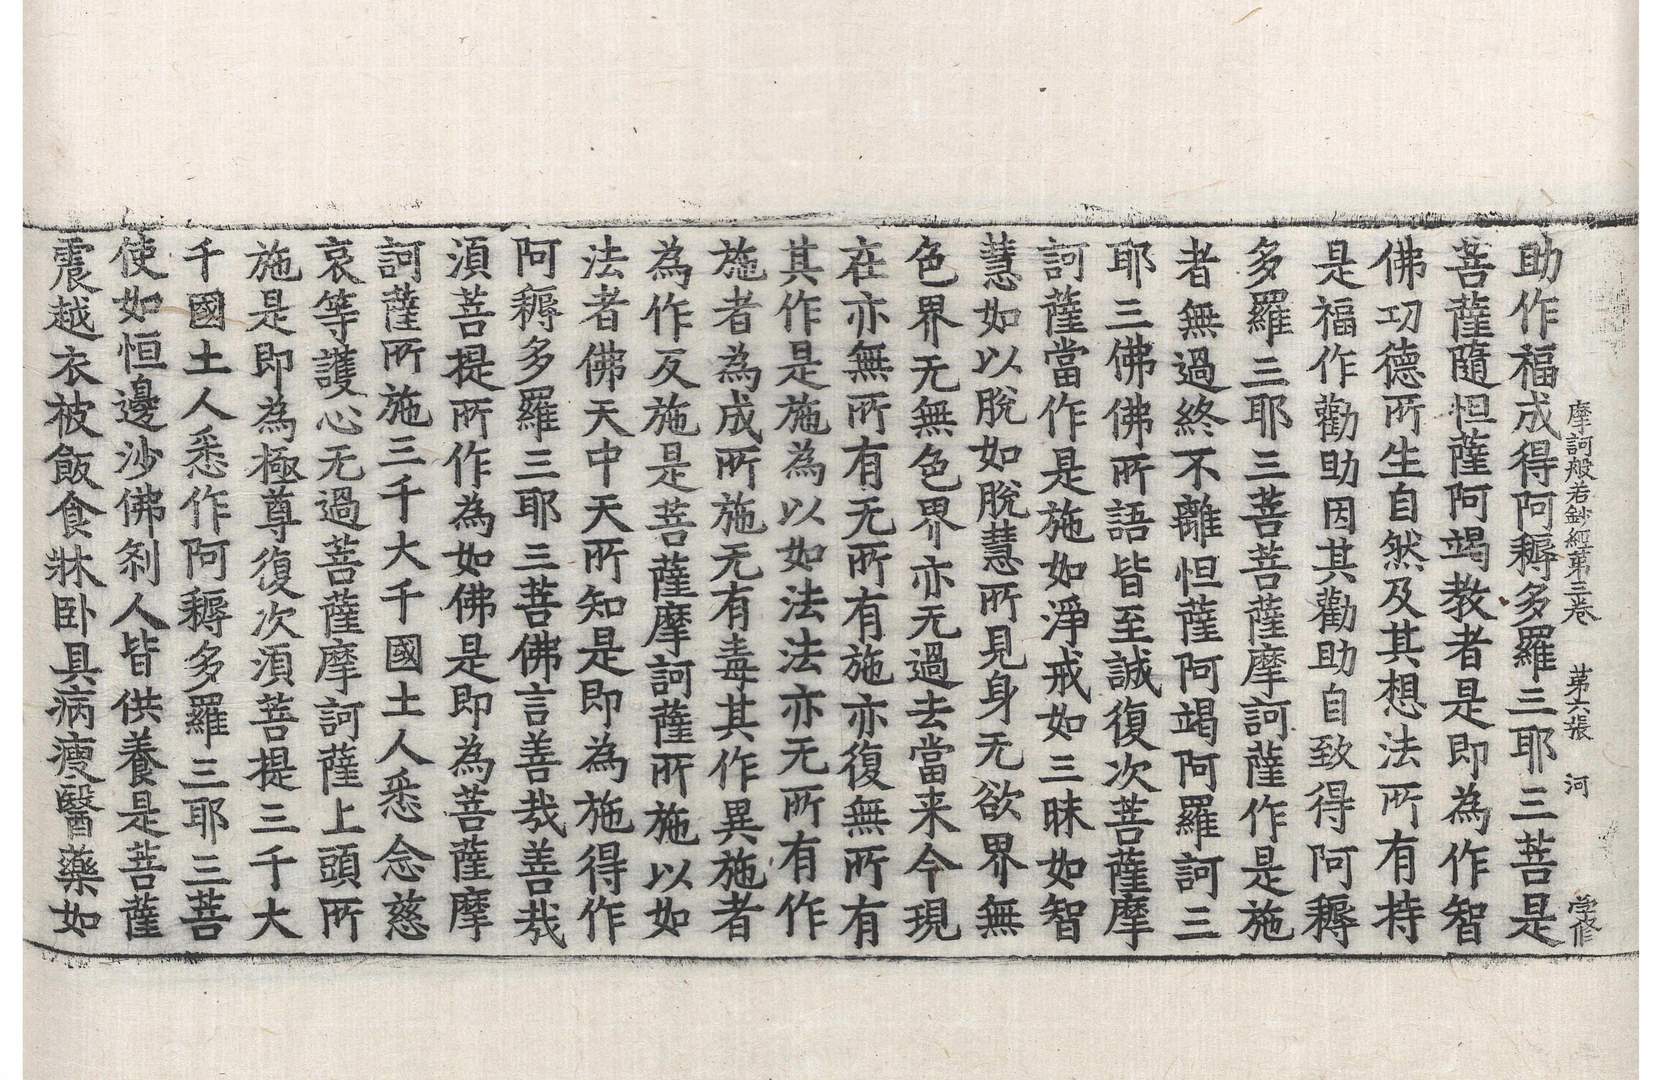 摩訶般若鈔經第三卷 第六張 河
助作福成得阿耨多羅三耶三菩是
菩薩隨怛薩阿竭教者是即為作智
佛功德所生自然及其想法所有持
是福作勸助因其勸助自致得阿耨
多羅三耶三菩菩薩摩訶薩作是施
者無過終不離怛薩阿竭阿羅訶三
耶三佛佛所語皆至誠復次菩薩摩
訶薩當作是施如淨戒如三昧如智
慧如以脫如脫慧所見身无欲界無
色界无無色界亦无過去當来今現
在亦無所有无所有施亦復無所有
其作是施為以如法法亦无所有作
施者為成所施无有毒其作異施者
為作反施是菩薩摩訶薩所施以如
法者佛天中天所知是即為施得作
阿耨多羅三耶三菩佛言善哉善哉
須菩提所作為如佛是即為菩薩摩
訶薩所施三千大千國土人悉念慈
哀等護心无過菩薩摩訶薩上頭所
施是即為極尊復次須菩提三千大
千國土人悉作阿耨多羅三耶三菩
使如恒邊沙佛剎人皆供養是菩薩
震越衣被飯食牀卧具病瘦醫藥如